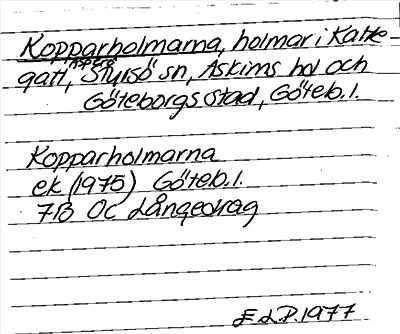 Kopparholmarna, holmar i Katte-
gatt, Styrsö sn, Askims hd och
Göteborgs stad, Göteb. l.
Kopparholmarna
ek (1975) Göteb. l.
7B 0c Långedrag
E.L.P. 1977